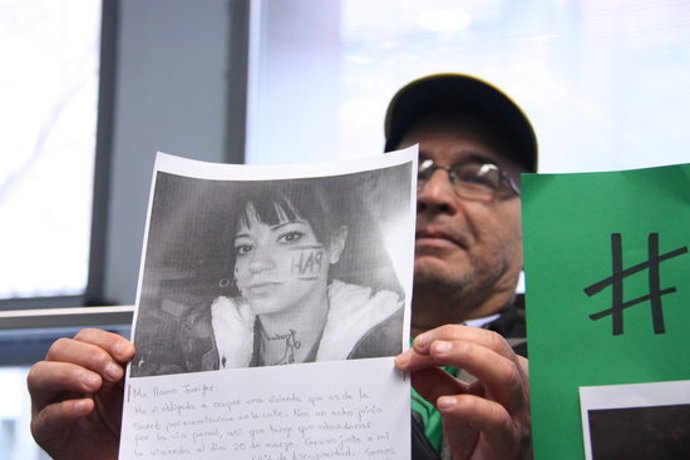 PAH
#
Me llamo Jennifer.
Me vi obligada a ocupar una vivienda que es de la
Sareb por encontrarme en la calle. Nos an echo juicio
por la via penal, así que tengo que abandonar
la vivienda el dia 20 de marzo. Convivo junto a mi
de discapacidad. Somos